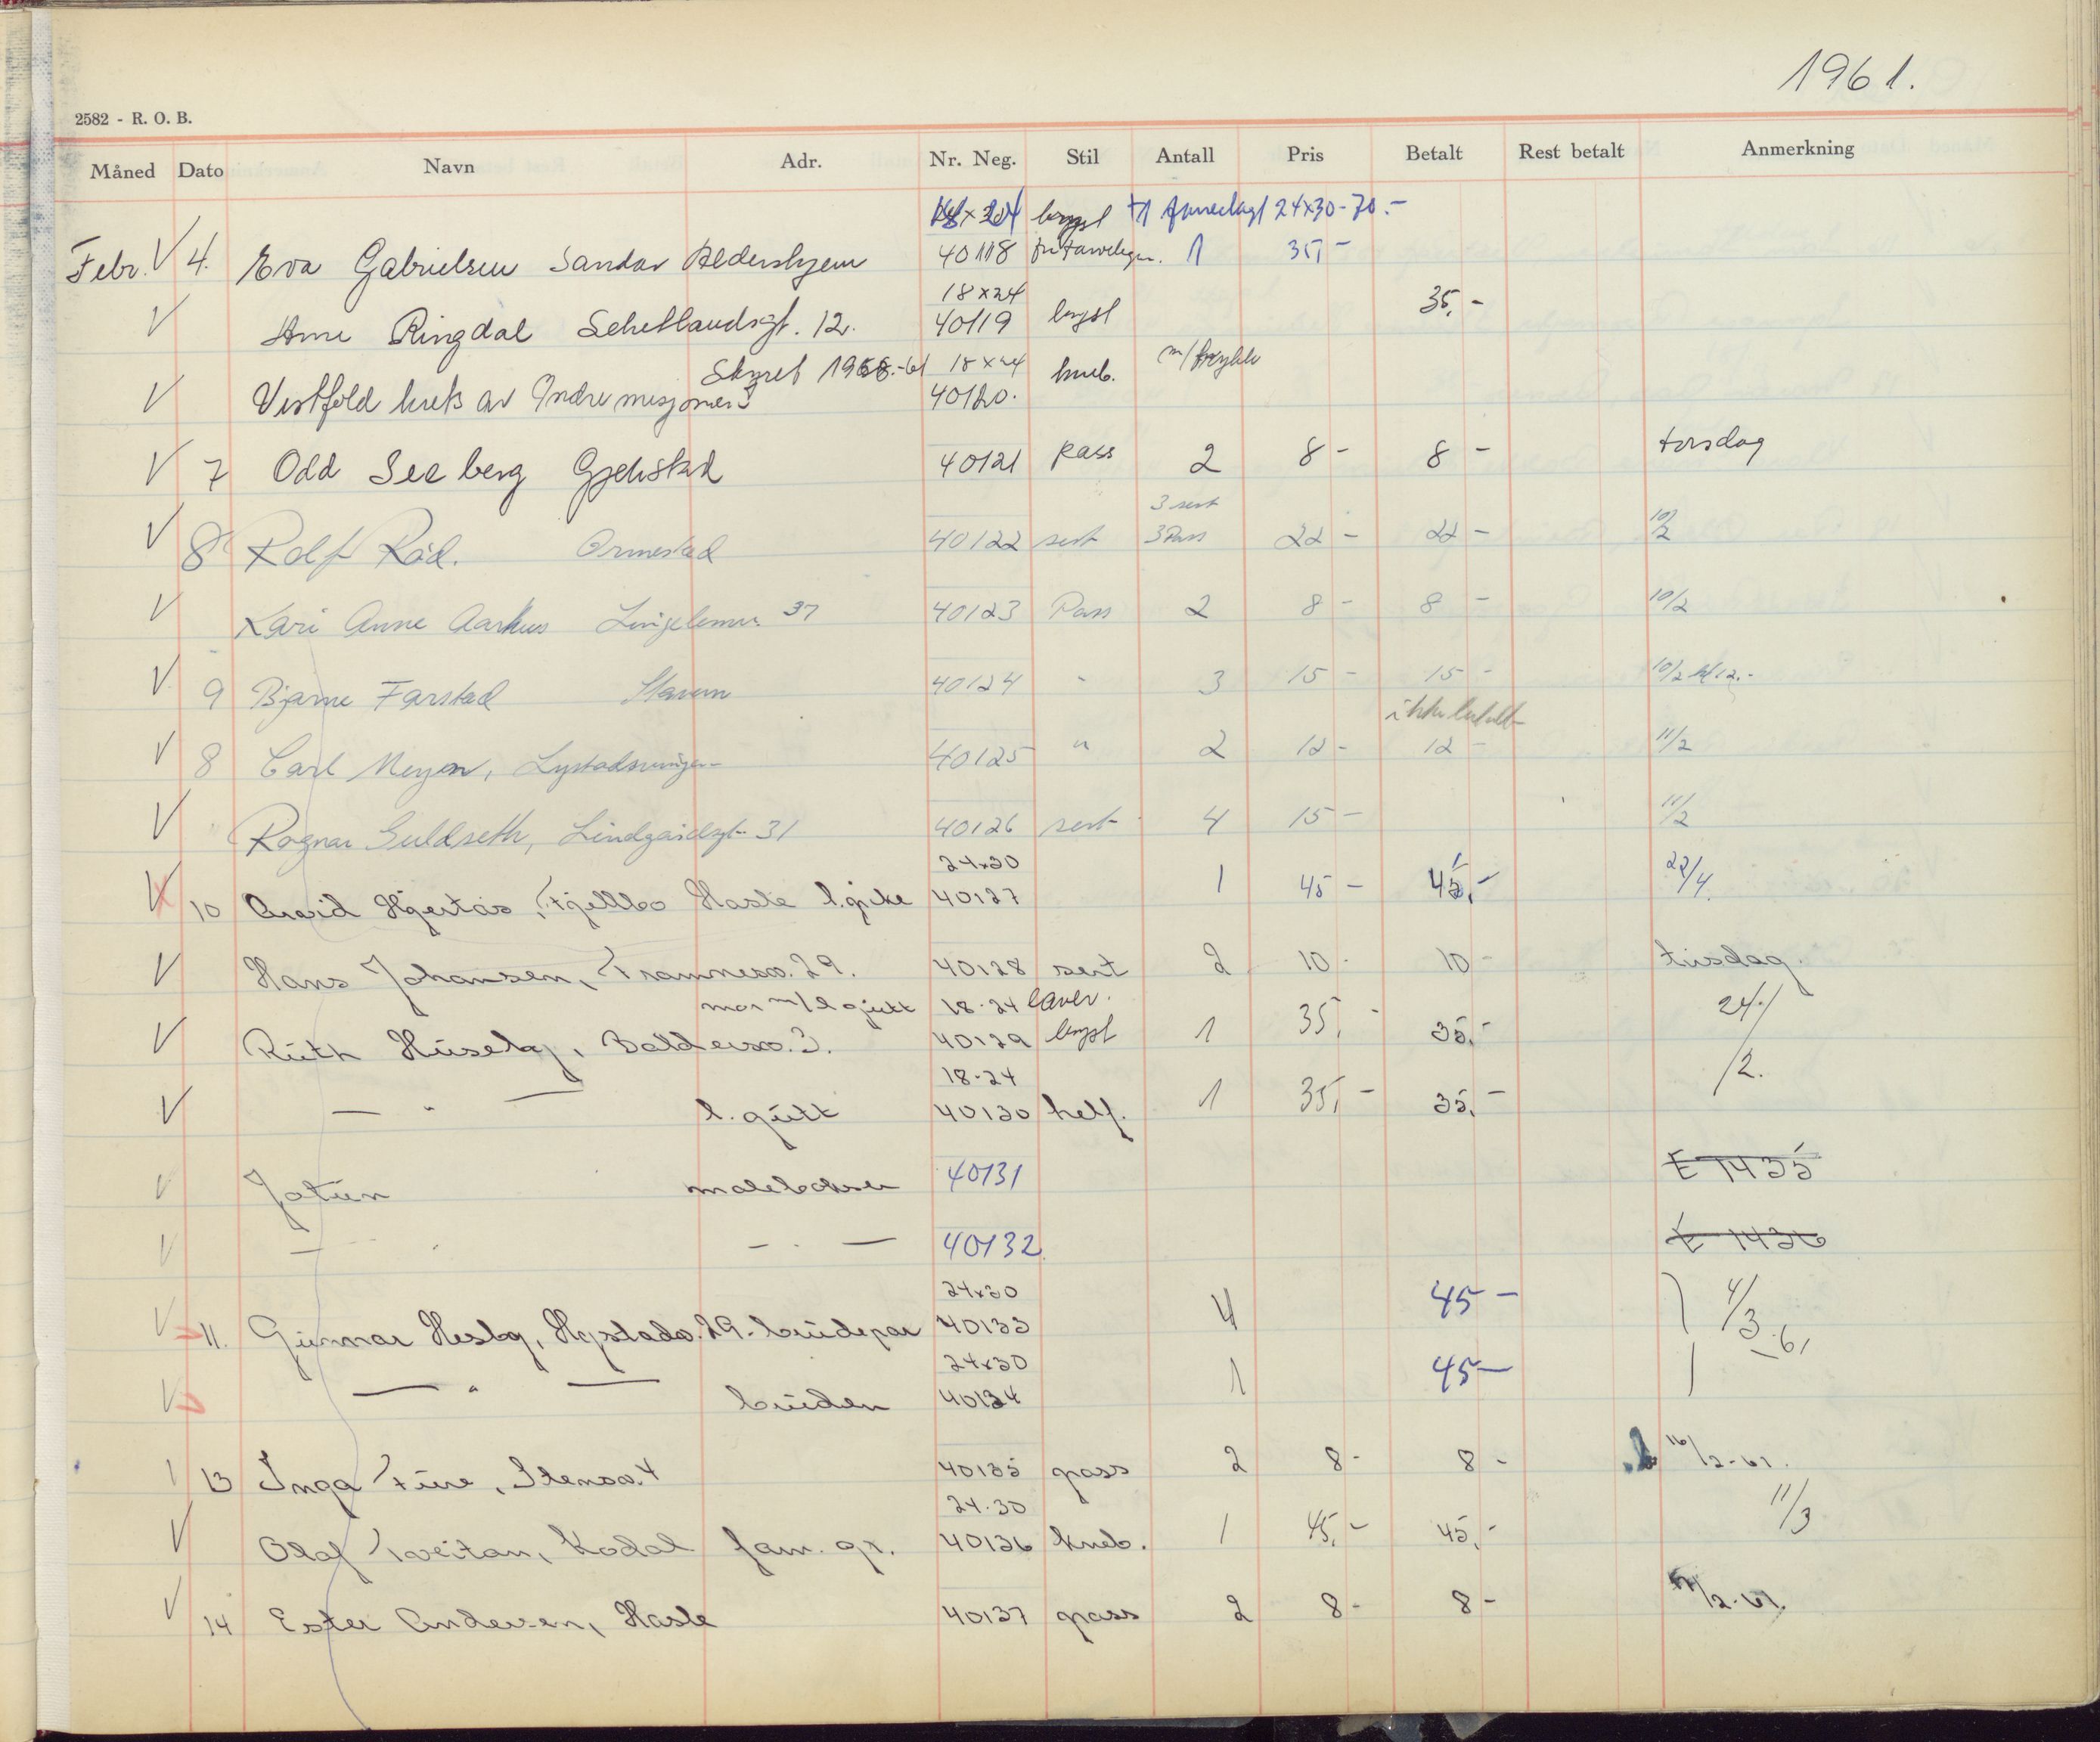 1961.
2582 - R. O. B.
Måned Dato Navn Adr. Nr. Neg. Stil Antall Pris Betalt Rest betalt Anmerkning
bryst 24x30-70.-
Febr. V 4. Eva Gabrielsen Sandar Aldershjem 40118 1 35,-
18x24
V Arne Ringdal 12. 40119 bryst 35,-
Skyret 18x24 kneb.
V Vestfold krets av Indremisjonen 40120.
V 7 Odd Seeberg Gjekstad 40121 pass 2 8- 8- torsdag
3 sert
V 8 Rolf Råd. Ormestad 40122 sert 3 Pass 22- 22- 10/2
V Kari Anne Aarhus 37 40123 Pass 2 8- 8- 10/2
V 9 Bjarne Farstad Stavern 40124 " 3 15- 15- 10/2 kl 12.-
ikke betalt
V 8 Carl Meyer, 40125 " 2 12- 12- 11/2
V Ragnar Guldseth, Lindgaardsgt 31 40126 sert 4 15- 11/2
24x30
V 10 Arvid Hjertås, Fjellbo Hasle l. pike 40127 1 45- 45,- 22/4.
V Hans Johansen, Framnesv. 29. 40128 sert 2 10- 10- tirsdag.
mor m/ l gutt 18-24 laver. 24./
V Ruth Huseby, Baldersv. 3. 40129 bryst 1 35,- 35,- /2.
18-24
V — " — l. gutt 40130 helf. 1 35,- 35,-
V Jotun malebokser 40131 E 1435
V — " — — " — 40132. E 1436
24x30
V 11. Gunnar Hesby, Hystadv. 29. brudepar 40133 4 45- 4/3-61
24x30
V — " — bruden 40134 1 45-
13 Inga Fure, Stensv. 4 40135 pass 2 8- 8- 16/2-61.
24-30
V Olaf Tveitan, Kodal fam. gr. 40136 kneb. 1 45,- 45,- 11/3
V 14 Ester Andersen, Hasle 40137 pass 2 8- 8- /2-61.